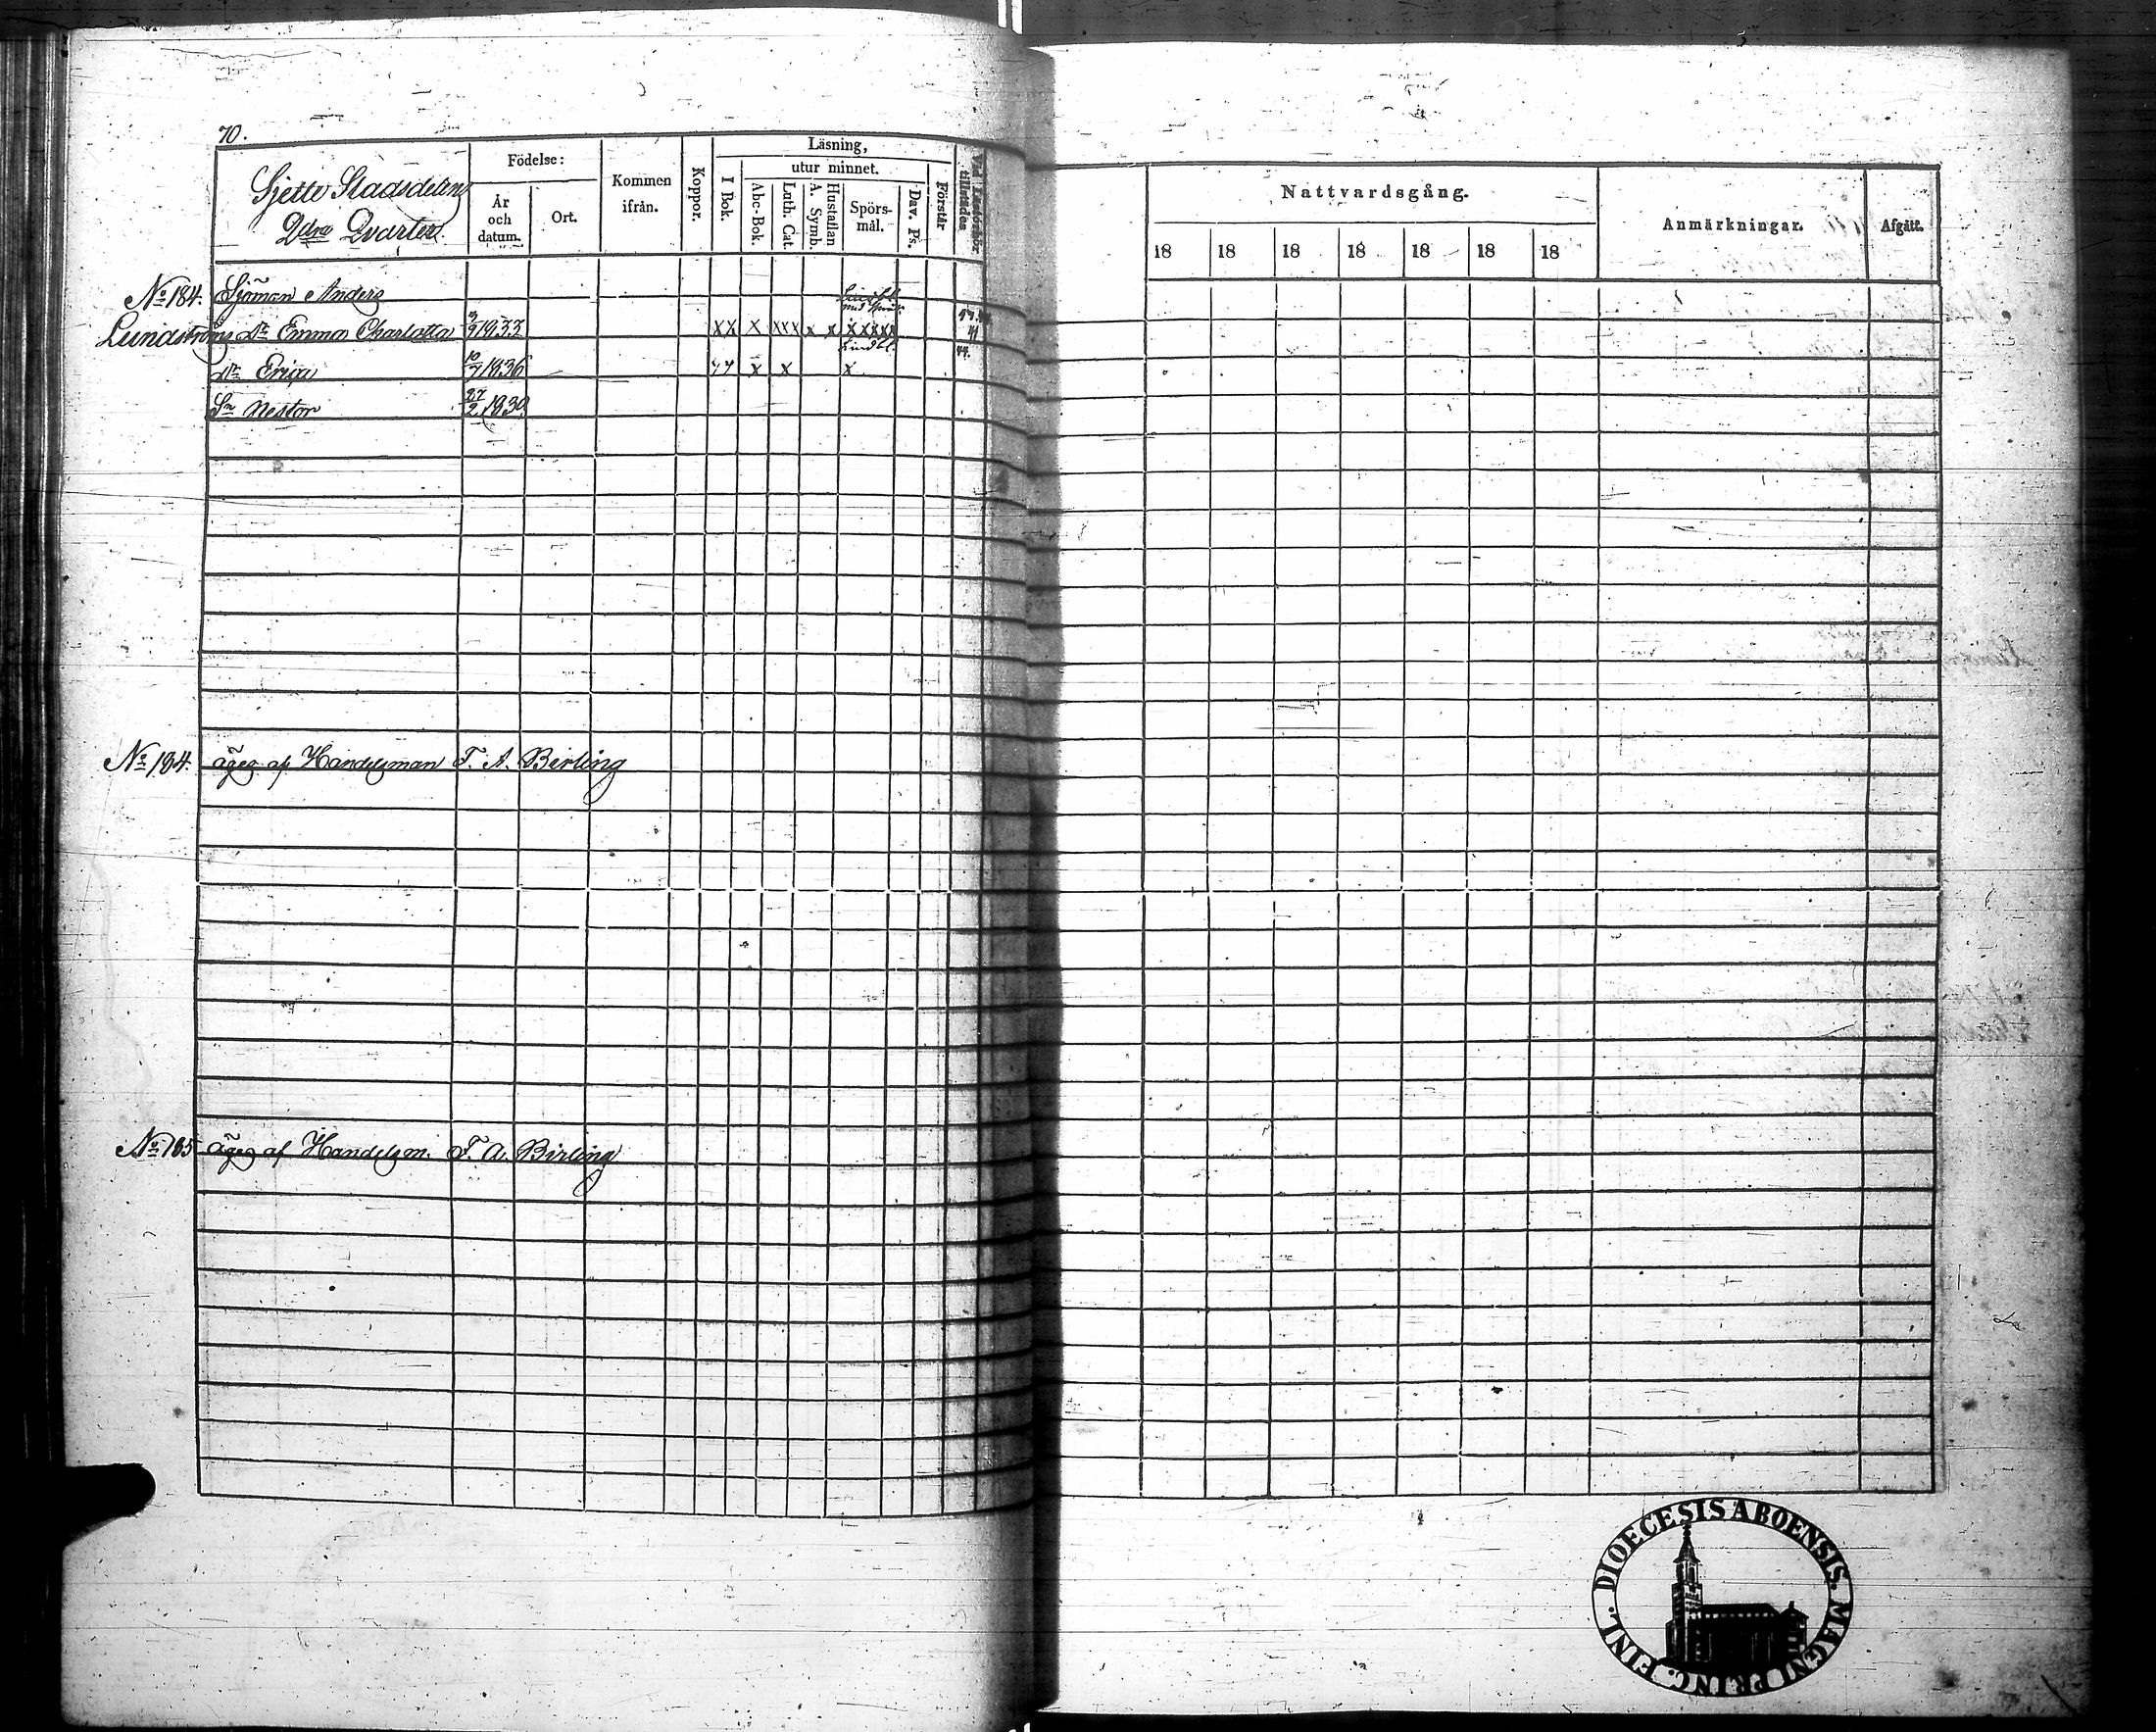 70.
Sjette Stadsdelen
2dra Qvarter.
Födelse:
År och datum.
Ort.
Kommen ifrån.
Koppor.
Läsning,
I Bok.
utur minnet.
Abc-Bok.
Luth. Cat.
A. Symb.
Hustaflan
Spörs-mål.
Dav. Ps.
Förstår
tillstädes
Nattvardsgång.
18 18 18 18 18 18 18
Anmärkningar.
Afgått.
No 184. Sjöman Anders
Lundströms Dr Emma Charlotta 3/9 1833 XX X XXX X X XXXXX
Dr Erica 10/7 1836 X X X
Sn Nestor 27/2 1839
No 184. äges af Handelsman F. A. Birling
No 185 äges af Handelsm. F. A. Birling
DIOECESIS ABOENSIS. MAGNI PRINC. FINL.